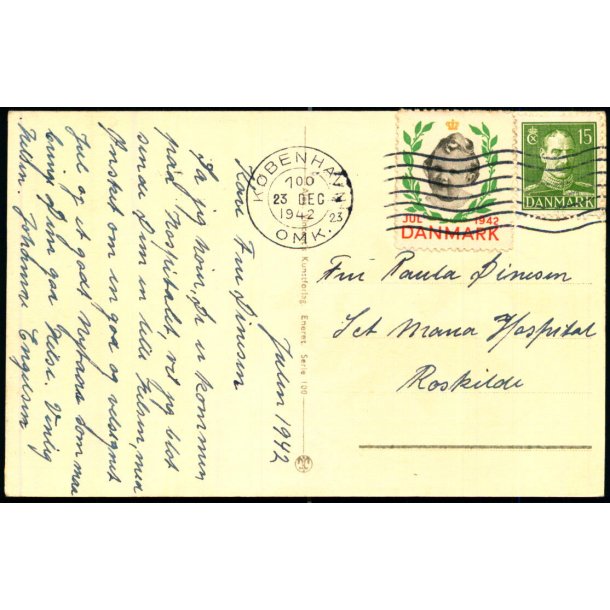 Julen 1942
Kære Fru Dinesen
Da jeg hører, De er kommen
paa Hospitalet, vil jeg blot
sende Dem en lille Hilsen, med
Ønsket om en god og velsignet
Jul og et godt Nytaar som maa
bringe Dem god Helse. Venlig
Hilsen. Johanne Engelsen
KØBENHAVN
700
23 DEC
1942
23
OMK.
JUL 1942
DANMARK
15
DANMARK
Fru Paula Dinesen
Sct Maria Hospital
Roskilde
Kunstforlag. Eneret. Serie 100